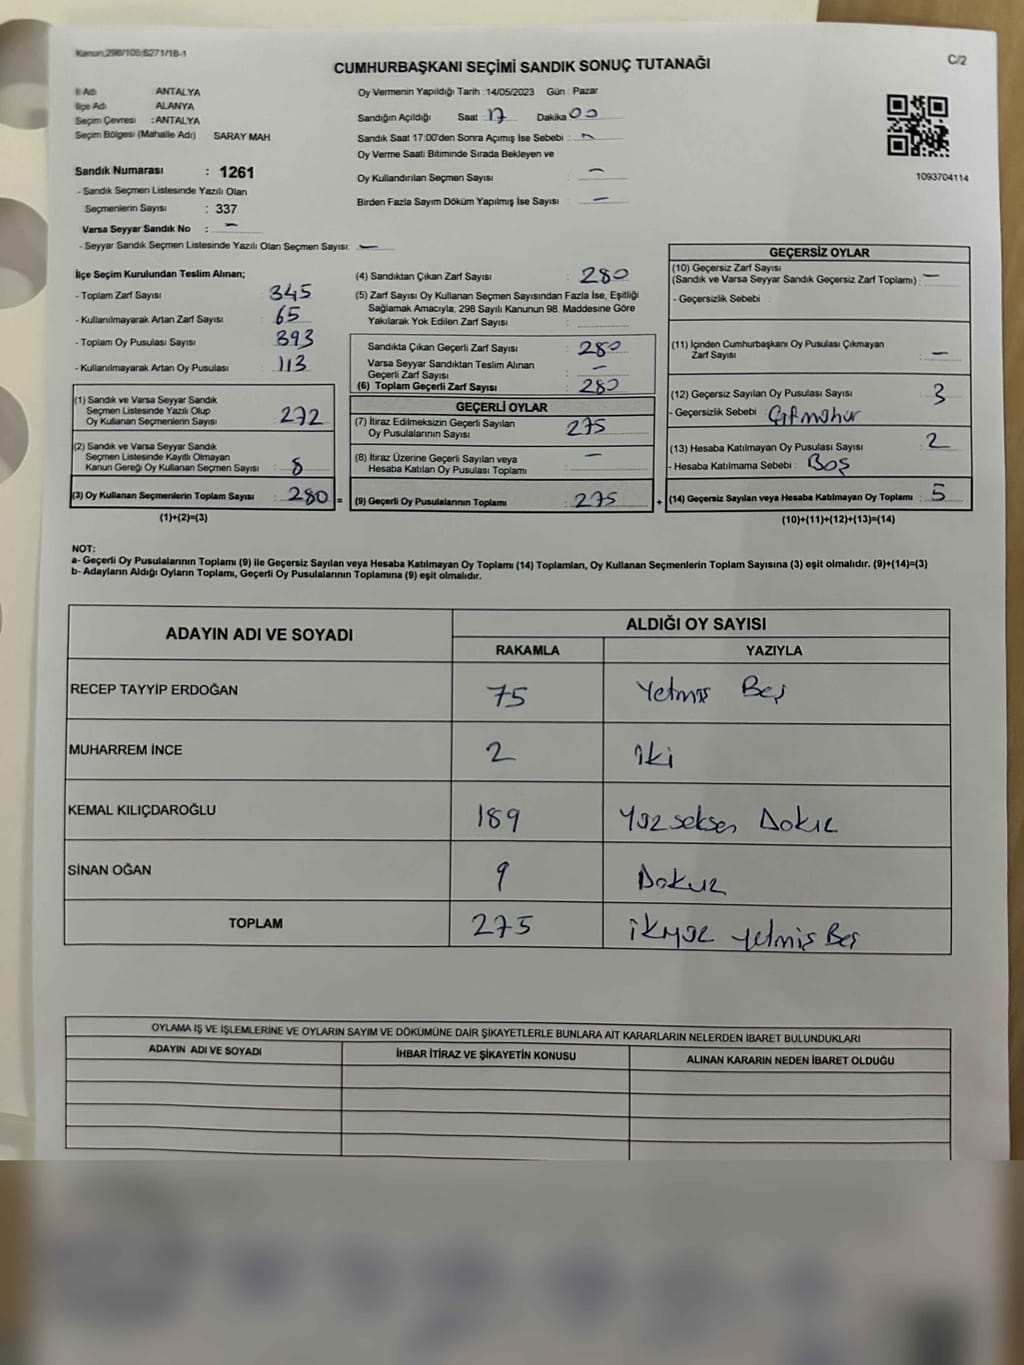 Kanun,298/105;6271/18-1
C/2
CUMHURBAŞKANI SEÇİMİ SANDIK SONUÇ TUTANAĞI
İl Adı ANTALYA
İlçe Adı ALANYA
Seçim Çevresi : ANTALYA
Seçim Bölgesi (Mahalle Adı) SARAY MAH
Sandık Numarası : 1261
- Sandık Seçmen Listesinde Yazılı Olan
Seçmenlerin Sayısı : 337
Varsa Seyyar Sandık No : -
- Seyyar Sandık Seçmen Listesinde Yazılı Olan Seçmen Sayısı: -
Oy Vermenin Yapıldığı Tarih : 14/05/2023 Gün : Pazar
Sandığın Açıldığı Saat : 17 Dakika 00
Sandık Saat 17:00'den Sonra Açımış İse Sebebi : -
Oy Verme Saati Bitiminde Sırada Bekleyen ve
Oy Kullandırılan Seçmen Sayısı : -
Birden Fazla Sayım Döküm Yapılmış İse Sayısı : -
1093704114
İlçe Seçim Kurulundan Teslim Alınan;
- Toplam Zarf Sayısı : 345
- Kullanılmayarak Artan Zarf Sayısı : 65
- Toplam Oy Pusulası Sayısı : 393
- Kullanılmayarak Artan Oy Pusulası : 113
(1) Sandık ve Varsa Seyyar Sandık
Seçmen Listesinde Yazılı Olup
Oy Kullanan Seçmenlerin Sayısı : 272
(2) Sandık ve Varsa Seyyar Sandık
Seçmen Listesinde Kayıtlı Olmayan
Kanun Gereği Oy Kullanan Seçmen Sayısı : 8
(3) Oy Kullanan Seçmenlerin Toplam Sayısı : 280 =
(1)+(2)=(3)
(4) Sandıktan Çıkan Zarf Sayısı : 280
(5) Zarf Sayısı Oy Kullanan Seçmen Sayısından Fazla İse, Eşitliği
Sağlamak Amacıyla, 298 Sayılı Kanunun 98. Maddesine Göre
Yakılarak Yok Edilen Zarf Sayısı :
Sandıkta Çıkan Geçerli Zarf Sayısı : 280
Varsa Seyyar Sandıktan Teslim Alınan
Geçerli Zarf Sayısı : -
(6) Toplam Geçerli Zarf Sayısı : 280
GEÇERLİ OYLAR
(7) İtiraz Edilmeksizin Geçerli Sayılan
Oy Pusulalarının Sayısı : 275
(8) İtiraz Üzerine Geçerli Sayılan veya
Hesaba Katılan Oy Pusulası Toplamı : -
(9) Geçerli Oy Pusulalarının Toplamı : 275 +
GEÇERSİZ OYLAR
(10) Geçersiz Zarf Sayısı
(Sandık ve Varsa Seyyar Sandık Geçersiz Zarf Toplamı) : -
- Geçersizlik Sebebi :
(11) İçinden Cumhurbaşkanı Oy Pusulası Çıkmayan
Zarf Sayısı : -
(12) Geçersiz Sayılan Oy Pusulası Sayısı : 3
- Geçersizlik Sebebi :
(13) Hesaba Katılmayan Oy Pusulası Sayısı : 2
- Hesaba Katılmama Sebebi : Boş
(14) Geçersiz Sayılan veya Hesaba Katılmayan Oy Toplamı : 5
(10)+(11)+(12)+(13)=(14)
NOT:
a- Geçerli Oy Pusulalarının Toplamı (9) ile Geçersiz Sayılan veya Hesaba Katılmayan Oy Toplamı (14) Toplamları, Oy Kullanan Seçmenlerin Toplam Sayısına (3) eşit olmalıdır. (9)+(14)=(3)
b- Adayların Aldığı Oyların Toplamı, Geçerli Oy Pusulalarının Toplamına (9) eşit olmalıdır.
ADAYIN ADI VE SOYADI ALDIĞI OY SAYISI
RAKAMLA YAZIYLA
RECEP TAYYİP ERDOĞAN 75 Yetmiş Beş
MUHARREM İNCE 2 iki
KEMAL KILIÇDAROĞLU 189 Yüz seksen Dokuz
SİNAN OĞAN 9 Dokuz
TOPLAM 275 ikiyüz yetmiş Beş
OYLAMA İŞ VE İŞLEMLERİNE VE OYLARIN SAYIM VE DÖKÜMÜNE DAİR ŞİKAYETLERLE BUNLARA AİT KARARLARIN NELERDEN İBARET BULUNDUKLARI
ADAYIN ADI VE SOYADI İHBAR İTİRAZ VE ŞİKAYETİN KONUSU ALINAN KARARIN NEDEN İBARET OLDUĞU